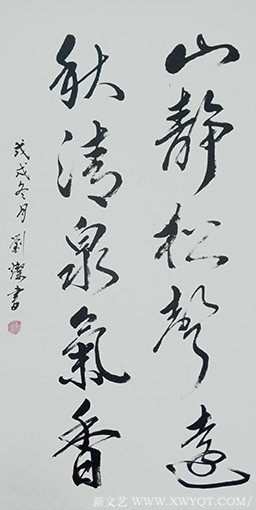 山静松聲遠
秋清泉氣香
戊戌冬月劉燦書
新文艺 WWW.XWYQT.COM